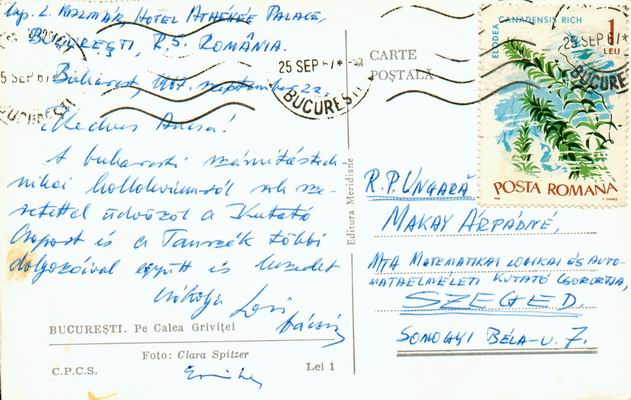 Exp. L. KALMÁR HOTEL ATHÉNÉE PALACE,
BUCUREȘTI, R.S. ROMÂNIA.
Bukarest, 1967. szeptember 22.
Kedves Ancsa!
A bukaresti számítástech-
nikai kollokviumról sok sze-
retettel üdvözöl a Kutató
Csoport és a Tanszék többi
dolgozóival együtt is
BUCUREȘTI. Pe Calea Griviței
Foto: Clara Spitzer
C.P.C.S.
Lei 1
Editura Meridiane
CARTE
POȘTALĂ
25 SEP 67
BUCUREȘTI
ELODEA CANADENSIS RICH
1
LEU
25 SEP 67
BUCURE
POSTA ROMANA
R.P. UNGARĂ
MAKAY ÁRPÁDNÉ,
MTA MATEMATIKAI LOGIKAI ÉS AUTO-
MATAELMÉLETI KUTATÓ CSOPORTJA,
SZEGED.
SOMOGYI BÉLA-U. 7.